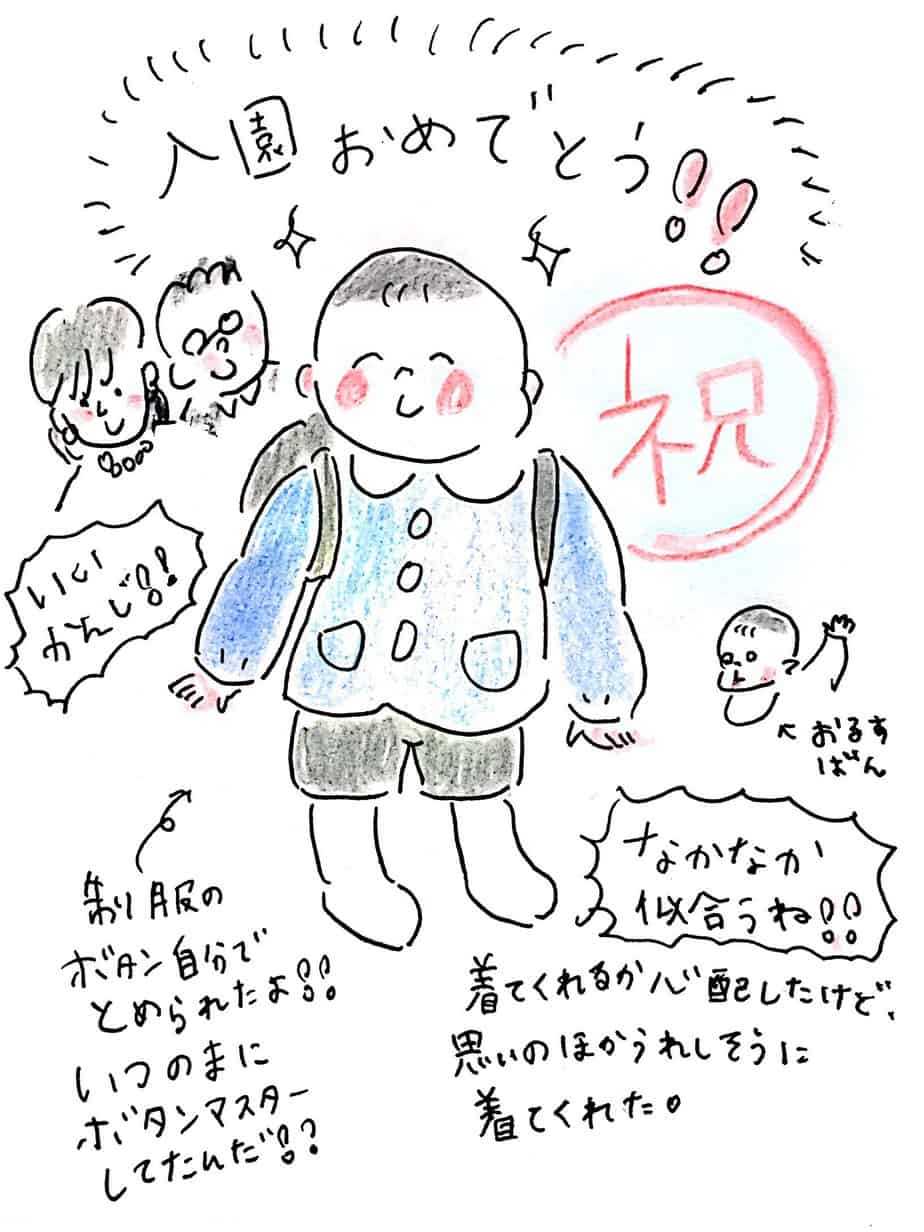 入園おめでとう!!
祝
いい
かんじ!!
おるす
ばん
なかなか
似合うね!!
制服の
ボタン自分で
とめられたよ!!
いつのまに
ボタンマスター
してたんだ!?
着てくれるか心配したけど、
思いのほかうれしそうに
着てくれた。